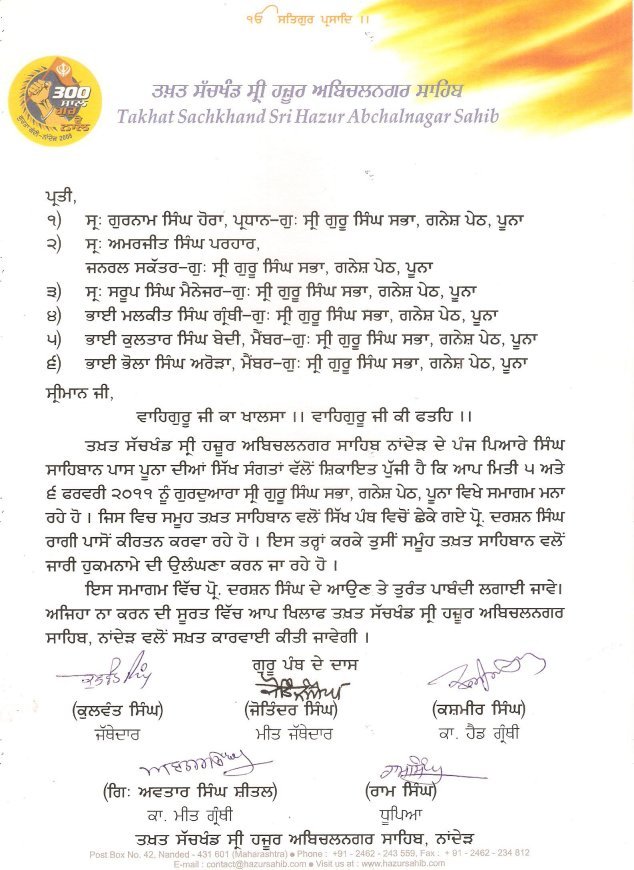 ੴ ਸਤਿਗੁਰ ਪ੍ਰਸਾਦਿ ।।
300
ਸਾਲ
ਗੁਰੂ ਦੇ
ਨਾਲ
ਤਖ਼ਤ ਸੱਚਖੰਡ ਸ੍ਰੀ ਹਜ਼ੂਰ ਅਬਿਚਲਨਗਰ ਸਾਹਿਬ
Takhat Sachkhand Sri Hazur Abchalnagar Sahib
ਪ੍ਰਤੀ,
੧) ਸ੍ਰ: ਗੁਰਨਾਮ ਸਿੰਘ ਹੋਰਾ, ਪ੍ਰਧਾਨ-ਗੁ: ਸ੍ਰੀ ਗੁਰੂ ਸਿੰਘ ਸਭਾ, ਗਨੇਸ਼ ਪੇਠ, ਪੂਨਾ
੨) ਸ੍ਰ: ਅਮਰਜੀਤ ਸਿੰਘ ਪਰਹਾਰ,
ਜਨਰਲ ਸਕੱਤਰ-ਗੁ: ਸ੍ਰੀ ਗੁਰੂ ਸਿੰਘ ਸਭਾ, ਗਨੇਸ਼ ਪੇਠ, ਪੂਨਾ
੩) ਸ੍ਰ: ਸਰੂਪ ਸਿੰਘ ਮੈਨੇਜਰ-ਗੁ: ਸ੍ਰੀ ਗੁਰੂ ਸਿੰਘ ਸਭਾ, ਗਨੇਸ਼ ਪੇਠ, ਪੂਨਾ
੪) ਭਾਈ ਮਲਕੀਤ ਸਿੰਘ ਗ੍ਰੰਥੀ-ਗੁ: ਸ੍ਰੀ ਗੁਰੂ ਸਿੰਘ ਸਭਾ, ਗਨੇਸ਼ ਪੇਠ, ਪੂਨਾ
੫) ਭਾਈ ਕੁਲਤਾਰ ਸਿੰਘ ਬੇਦੀ, ਮੈਂਬਰ-ਗੁ: ਸ੍ਰੀ ਗੁਰੂ ਸਿੰਘ ਸਭਾ, ਗਨੇਸ਼ ਪੇਠ, ਪੂਨਾ
੬) ਭਾਈ ਭੋਲਾ ਸਿੰਘ ਅਰੋੜਾ, ਮੈਂਬਰ-ਗੁ: ਸ੍ਰੀ ਗੁਰੂ ਸਿੰਘ ਸਭਾ, ਗਨੇਸ਼ ਪੇਠ, ਪੂਨਾ
ਸ੍ਰੀਮਾਨ ਜੀ,
ਵਾਹਿਗੁਰੂ ਜੀ ਕਾ ਖਾਲਸਾ ।। ਵਾਹਿਗੁਰੂ ਜੀ ਕੀ ਫਤਹਿ ।।
ਤਖ਼ਤ ਸੱਚਖੰਡ ਸ੍ਰੀ ਹਜ਼ੂਰ ਅਬਿਚਲਨਗਰ ਸਾਹਿਬ ਨਾਂਦੇੜ ਦੇ ਪੰਜ ਪਿਆਰੇ ਸਿੰਘ
ਸਾਹਿਬਾਨ ਪਾਸ ਪੂਨਾ ਦੀਆਂ ਸਿੱਖ ਸੰਗਤਾਂ ਵੱਲੋਂ ਸ਼ਿਕਾਇਤ ਪੁੱਜੀ ਹੈ ਕਿ ਆਪ ਮਿਤੀ ੫ ਅਤੇ
੬ ਫਰਵਰੀ ੨੦੧੧ ਨੂੰ ਗੁਰਦੁਆਰਾ ਸ੍ਰੀ ਗੁਰੂ ਸਿੰਘ ਸਭਾ, ਗਨੇਸ਼ ਪੇਠ, ਪੂਨਾ ਵਿਖੇ ਸਮਾਗਮ ਮਨਾ
ਰਹੇ ਹੋ । ਜਿਸ ਵਿਚ ਸਮੂਹ ਤਖ਼ਤ ਸਾਹਿਬਾਨ ਵਲੋਂ ਸਿੱਖ ਪੰਥ ਵਿਚੋਂ ਛੇਕੇ ਗਏ ਪ੍ਰੋ. ਦਰਸ਼ਨ ਸਿੰਘ
ਰਾਗੀ ਪਾਸੋਂ ਕੀਰਤਨ ਕਰਵਾ ਰਹੇ ਹੋ । ਇਸ ਤਰ੍ਹਾਂ ਕਰਕੇ ਤੁਸੀਂ ਸਮੂੰਹ ਤਖ਼ਤ ਸਾਹਿਬਾਨ ਵਲੋਂ
ਜਾਰੀ ਹੁਕਮਨਾਮੇ ਦੀ ਉਲੰਘਣਾ ਕਰਨ ਜਾ ਰਹੇ ਹੋ ।
ਇਸ ਸਮਾਗਮ ਵਿੱਚ ਪ੍ਰੋ. ਦਰਸ਼ਨ ਸਿੰਘ ਦੇ ਆਉਣ ਤੇ ਤੁਰੰਤ ਪਾਬੰਦੀ ਲਗਾਈ ਜਾਵੇ।
ਅਜਿਹਾ ਨਾ ਕਰਨ ਦੀ ਸੂਰਤ ਵਿੱਚ ਆਪ ਖਿਲਾਫ ਤਖ਼ਤ ਸੱਚਖੰਡ ਸ੍ਰੀ ਹਜ਼ੂਰ ਅਬਿਚਲਨਗਰ
ਸਾਹਿਬ, ਨਾਂਦੇੜ ਵਲੋਂ ਸਖ਼ਤ ਕਾਰਵਾਈ ਕੀਤੀ ਜਾਵੇਗੀ ।
ਗੁਰੂ ਪੰਥ ਦੇ ਦਾਸ
(ਕੁਲਵੰਤ ਸਿੰਘ) (ਜੋਤਿੰਦਰ ਸਿੰਘ) (ਕਸ਼ਮੀਰ ਸਿੰਘ)
ਜੱਥੇਦਾਰ ਮੀਤ ਜੱਥੇਦਾਰ ਕਾ. ਹੈਡ ਗ੍ਰੰਥੀ
(ਗਿ: ਅਵਤਾਰ ਸਿੰਘ ਸ਼ੀਤਲ) (ਰਾਮ ਸਿੰਘ)
ਕਾ. ਮੀਤ ਗ੍ਰੰਥੀ ਧੂਪਿਆ
ਤਖ਼ਤ ਸੱਚਖੰਡ ਸ੍ਰੀ ਹਜ਼ੂਰ ਅਬਿਚਲਨਗਰ ਸਾਹਿਬ, ਨਾਂਦੇੜ
Post Box No. 42, Nanded - 431 601 (Maharashtra) ● Phone : +91 - 2462 - 243 559, Fax : + 91 - 2462 - 234 812
E-mail : contact@hazursahib.com ● Visit us at : www.hazursahib.com